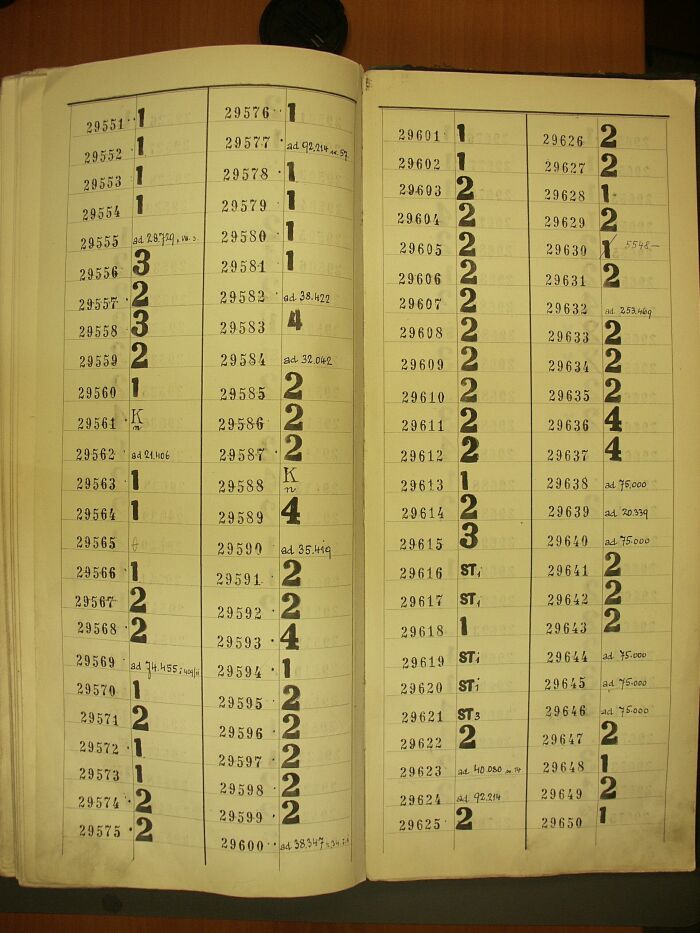 29551 1
29552 1
29553 1
29554 1
29555 ad 28.729
29556 3
29557 2
29558 3
29559 2
29560 1
29561 K n
29562 ad 21.406
29563 1
29564 1
29565
29566 1
29567 2
29568 2
29569 ad 74.455
29570 1
29571 2
29572 1
29573 1
29574 2
29575 2
29576 1
29577 ad 92.214
29578 1
29579 1
29580 1
29581 1
29582 ad 38.422
29583 4
29584 ad 32.042
29585 2
29586 2
29587 2
29588 K n
29589 4
29590 ad 35.419
29591 2
29592 2
29593 4
29594 1
29595 2
29596 2
29597 2
29598 2
29599 2
29600 ad 38.347
29601 1
29602 1
29603 2
29604 2
29605 2
29606 2
29607 2
29608 2
29609 2
29610 2
29611 2
29612 2
29613 1
29614 2
29615 3
29616 ST1
29617 ST1
29618 1
29619 ST1
29620 ST1
29621 ST3
29622 2
29623 ad 40.080
29624 ad 92.214
29625 2
29626 2
29627 2
29628 1
29629 2
29630 1 5548.—
29631 2
29632 ad 253.469
29633 2
29634 2
29635 2
29636 4
29637 4
29638 ad 75.000
29639 ad 20.339
29640 ad 75.000
29641 2
29642 2
29643 2
29644 ad 75.000
29645 ad 75.000
29646 ad 75.000
29647 2
29648 1
29649 2
29650 1